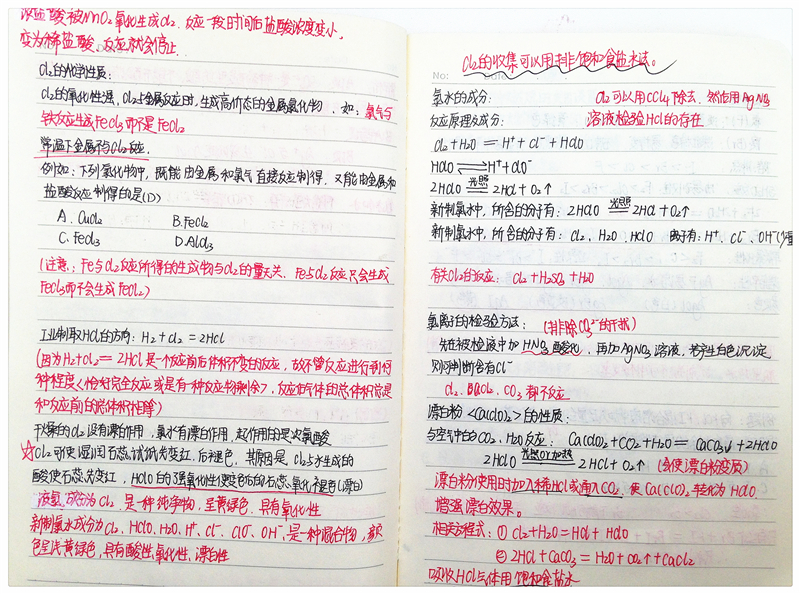 浓盐酸被MnO₂氧化生成Cl₂、反应一段时间后盐酸浓度变小,
变为稀盐酸、反应就会停止.
Cl₂的化学性质:
Cl₂的氧化性强、Cl₂与金属反应时,生成高价态的金属氯化物、如:氯气与
铁反应生成FeCl₃而不是FeCl₂
常温下金属不与Cl₂反应.
例如:下列氯化物中,既能由金属和氯气直接反应制得,又能由金属和
盐酸反应制得的是(D)
A. CuCl₂ B. FeCl₂
C. FeCl₃ D. AlCl₃
(注意:Fe与Cl₂反应所得的生成物与Cl₂的量无关、Fe与Cl₂反应只会生成
FeCl₃而不会生成FeCl₂)
工业制取HCl的方向: H₂+Cl₂=2HCl
(因为H₂+Cl₂=2HCl是一个反应前后体积不变的反应,故不管反应进行到何
种程度<恰好完全反应或是有一种反应物剩余>,反应后气体的总体积总是
和反应前的总体积相等)
干燥的Cl₂没有漂白作用,氯水有漂白作用,起作用的是次氯酸
☆Cl₂可使湿润石蕊试纸先变红,后褪色,其原因是Cl₂与水生成的
酸使石蕊先变红,HClO的强氧化性使变色后的石蕊氧化褪色(漂白)
液氯成分为Cl₂是一种纯净物,呈黄绿色,具有氧化性
新制氯水成分为Cl₂、HClO、H₂O、H⁺、Cl⁻、ClO⁻、OH⁻,是一种混合物,颜
色呈浅黄绿色,具有酸性、氧化性、漂白性
Cl₂的收集可以用排饱和食盐水法。
No:
氯水的成分: Cl₂可以用CCl₄下除去、然后用AgNO₃
反应原理及成分: 溶液检验HCl的存在
Cl₂+H₂O=H⁺+Cl⁻+HClO
HClO⇌H⁺+ClO⁻
2HClO 光照 2HCl+O₂↑
新制氯水中,所含的分子有: 2HClO 光照 2HCl+O₂↑
新制氯水中,所含的分子有: Cl₂、H₂O、HClO 离子有:H⁺、Cl⁻、OH⁻(少量
有关Cl₂的反应: Cl₂+H₂SO₃+H₂O
氯离子的检验方法: (排除CO₃²⁻的干扰)
先在被检液中加HNO₃酸化,再加AgNO₃溶液,若产生白色沉淀,
则可判断含有Cl⁻
Cl₂、BaCl₂、CO₂都不反应
漂白粉<Ca(ClO)₂>的性质:
与空气中的CO₂、H₂O反应: Ca(ClO)₂+CO₂+H₂O=CaCO₃↓+2HClO
2HClO 光照or加热 2HCl+O₂↑ (会使漂白粉变质)
漂白粉使用时加入稀HCl或通入CO₂,使Ca(ClO)₂转化为HClO
增强漂白效果。
相关方程式: ① Cl₂+H₂O=HCl+HClO
② 2HCl+CaCO₃=H₂O+CO₂↑+CaCl₂
吸收HCl气体用饱和食盐水